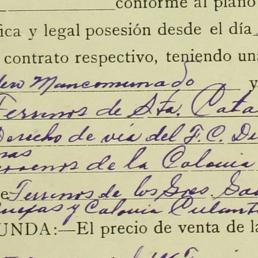 conforme al plano
ica y legal posesión desde el día
contrato respectivo, teniendo una
Mancomunado y
Terrenos de Sta. Cata
Derecho de vía del F. C. D
Terrenos de la Colonia
e Terrenos de los Sres. Ga
y Colonia
UNDA:—El precio de venta de la